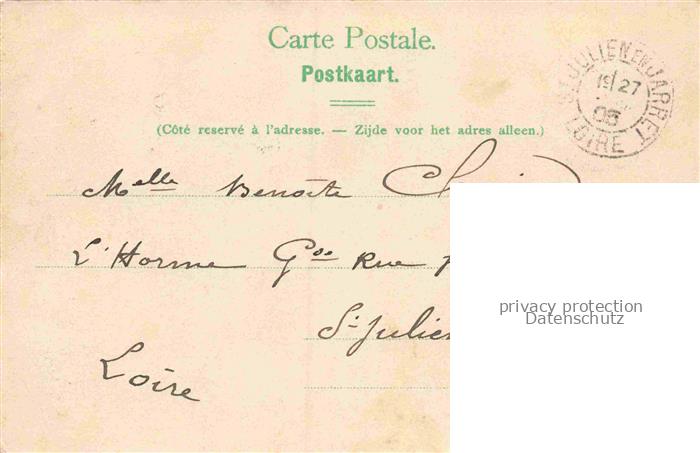 Carte Postale.
Postkaart.
(Côté reservé à l'adresse. — Zijde voor het adres alleen.)
ST JULIEN EN JARRET
19/27
05
LOIRE
Melle Benoîte
L'Horme Gde Rue
St Julien
Loire
privacy protection
Datenschutz